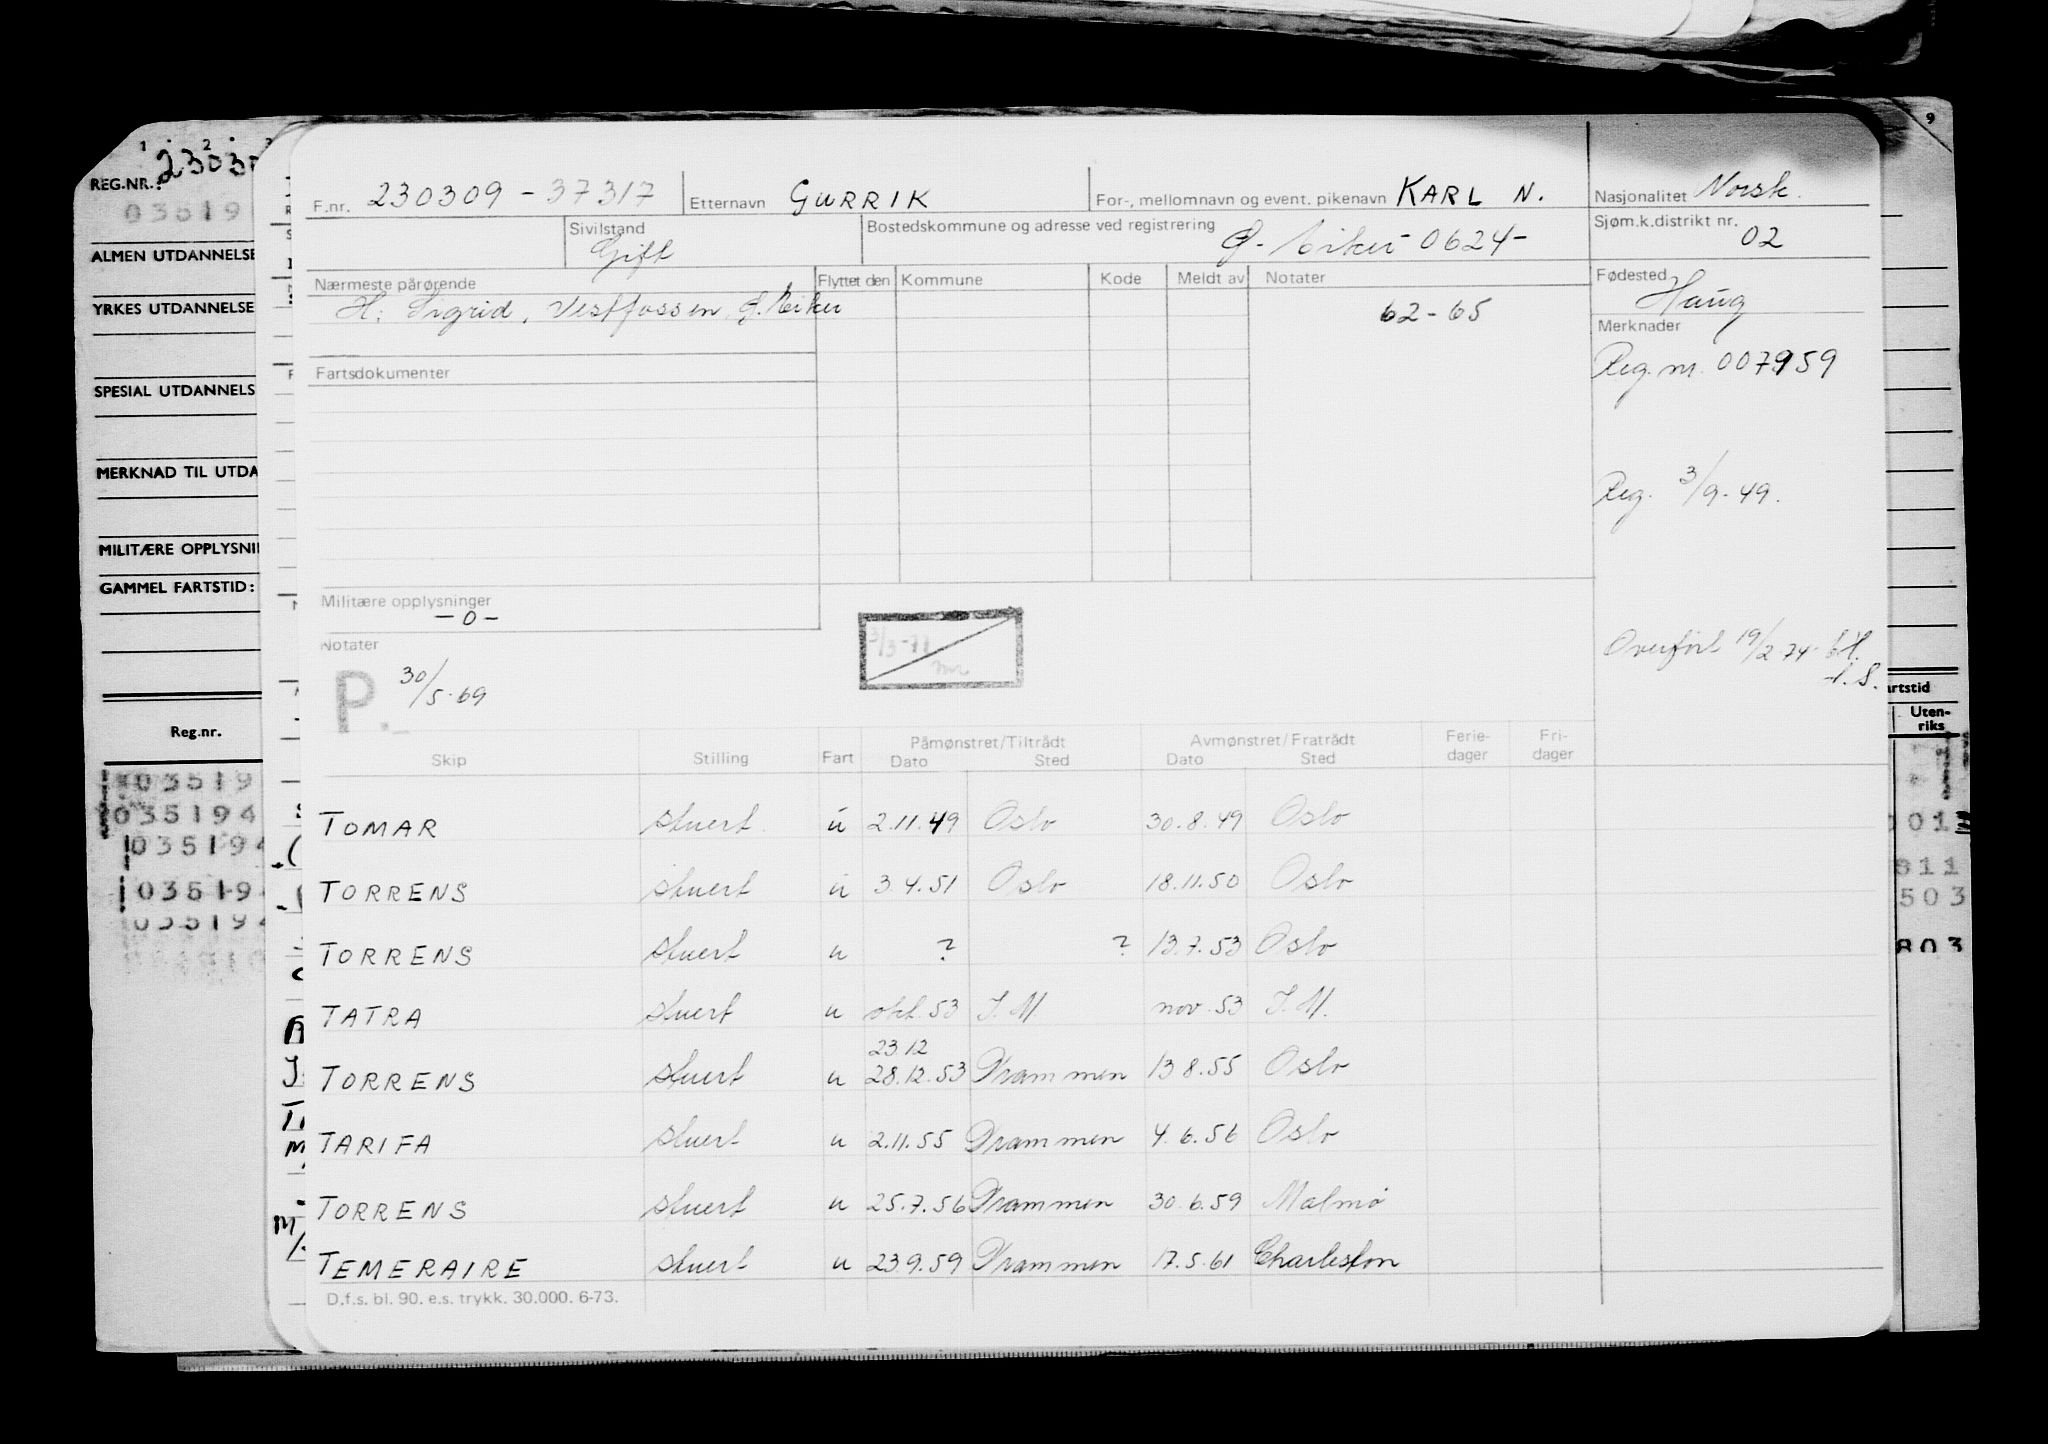 1 2 3 9
REG.NR.: 23030
03519
ALMEN UTDANNELSE
YRKES UTDANNELSE
SPESIAL UTDANNELS
MERKNAD TIL UTDA
MILITÆRE OPPLYSNI
GAMMEL FARTSTID:
Reg.nr.
03519
035194
035194
03519
035194
F.nr. 230309 - 37317 Etternavn GURRIK For-, mellomnavn og event. pikenavn KARL N. Nasjonalitet Norsk.
Sivilstand Gift Bostedskommune og adresse ved registrering Ø. Eiker 0624- Sjøm.k.distrikt nr. 02
Nærmeste pårørende Flyttet den Kommune Kode Meldt av Notater Fødested Haug
H: Sigrid, Vestfossen, Ø. Eiker 62-65
Merknader
Reg. nr. 007959
Fartsdokumenter
Reg. 3/9-49.
Militære opplysninger
-0-
Notater
P. 30/5-69
3/3-71
Overført 19/2-74
Skip Stilling Fart Påmønstret/Tiltrådt Dato Sted Avmønstret/Fratrådt Dato Sted Ferie-dager Fri-dager
artstid
Uten-
riks
TOMAR stuert u 2.11.49 Oslo 30.8.49 Oslo
TORRENS stuert u 3.4.51 Oslo 18.11.50 Oslo
TORRENS stuert u ? ? 13.7.53 Oslo
TATRA stuert u okt.53 I.M nov.53 I.M.
23.12
TORRENS stuert u 28.12.53 Drammen 13.8.55 Oslo
TARIFA stuert u 2.11.55 Drammen 4.6.56 Oslo
TORRENS stuert u 25.7.56 Drammen 30.6.59 Malmö
TEMERAIRE stuert u 23.9.59 Drammen 17.5.61 Charleston
001
811
503
803
D.f.s. bl. 90. e.s. trykk. 30.000. 6-73.